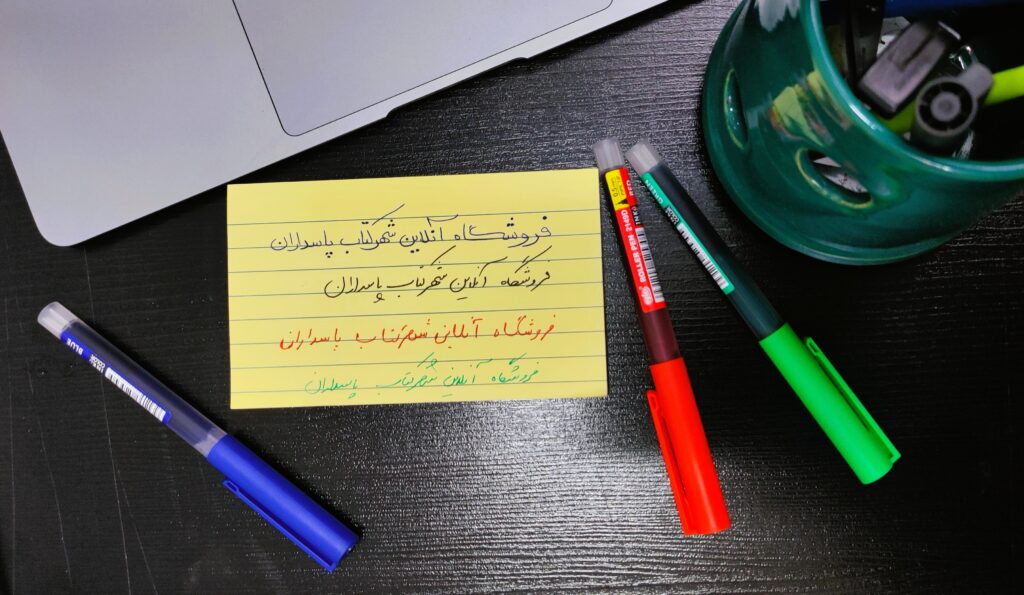 فروشگاه آنلاین شهرکتاب پاسداران
فروشگاه آنلاین شهرکتاب پاسداران
فروشگاه آنلاین شهرکتاب پاسداران
فروشگاه آنلاین شهرکتاب پاسداران
BLUE
ROLLER PEN